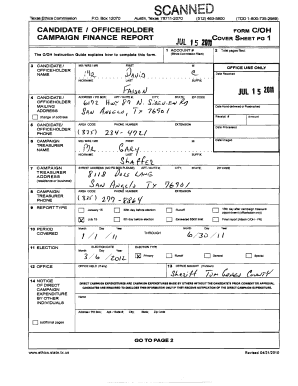 SCANNED
Texas Ethics Commission P.O. Box 12070 Austin, Texas 78711-2070 (512) 463-5800 (TDD 1-800-735-2989)
CANDIDATE / OFFICEHOLDER CAMPAIGN FINANCE REPORT
FORM C/OH
COVER SHEET PG 1
JUL 15 2011
The C/OH Instruction Guide explains how to complete this form.
1 ACCOUNT #
2 Total pages filed:
3 CANDIDATE / OFFICEHOLDER NAME
MS / MRS / MR FIRST MI
Mr David C
NICKNAME LAST SUFFIX
OFFICE USE ONLY
Date Received
JUL 15 2011
4 CANDIDATE / OFFICEHOLDER MAILING ADDRESS
change of address
ADDRESS / PO BOX; APT / SUITE #; CITY; STATE; ZIP CODE
San Angelo, TX 76901
Date Hand-delivered or Postmarked
Receipt # Amount
Date Processed
Date Imaged
5 CANDIDATE / OFFICEHOLDER PHONE
AREA CODE PHONE NUMBER EXTENSION
(325) 234-4921
6 CAMPAIGN TREASURER NAME
MS / MRS / MR FIRST MI
Mr. Gary
NICKNAME LAST SUFFIX
Shaffer
7 CAMPAIGN TREASURER ADDRESS
San Angelo TX 76901
8 CAMPAIGN TREASURER PHONE
AREA CODE PHONE NUMBER EXTENSION
(325) 277-8864
9 REPORT TYPE
January 15
30th day before election
Runoff
15th day after campaign treasurer appointment (officeholder only)
July 15
8th day before election
Exceeded $500 limit
Final report (Attach C/OH - FR)
10 PERIOD COVERED
Month Day Year
1 / 1 / 11
THROUGH
Month Day Year
6 / 30 / 11
11 ELECTION
ELECTION DATE
Month Day Year
3 / 6 / 2012
ELECTION TYPE
Primary
Runoff
General
Special
12 OFFICE
OFFICE HELD (if any)
13 OFFICE SOUGHT (if known)
Sheriff Tom Green County
14 NOTICE OF DIRECT CAMPAIGN EXPENDITURE BY OTHER INDIVIDUALS
additional pages
Name
Address / PO Box; Apt / Suite #; City; State; Zip Code
GO TO PAGE 2
www.ethics.state.tx.us
Revised 04/21/2010